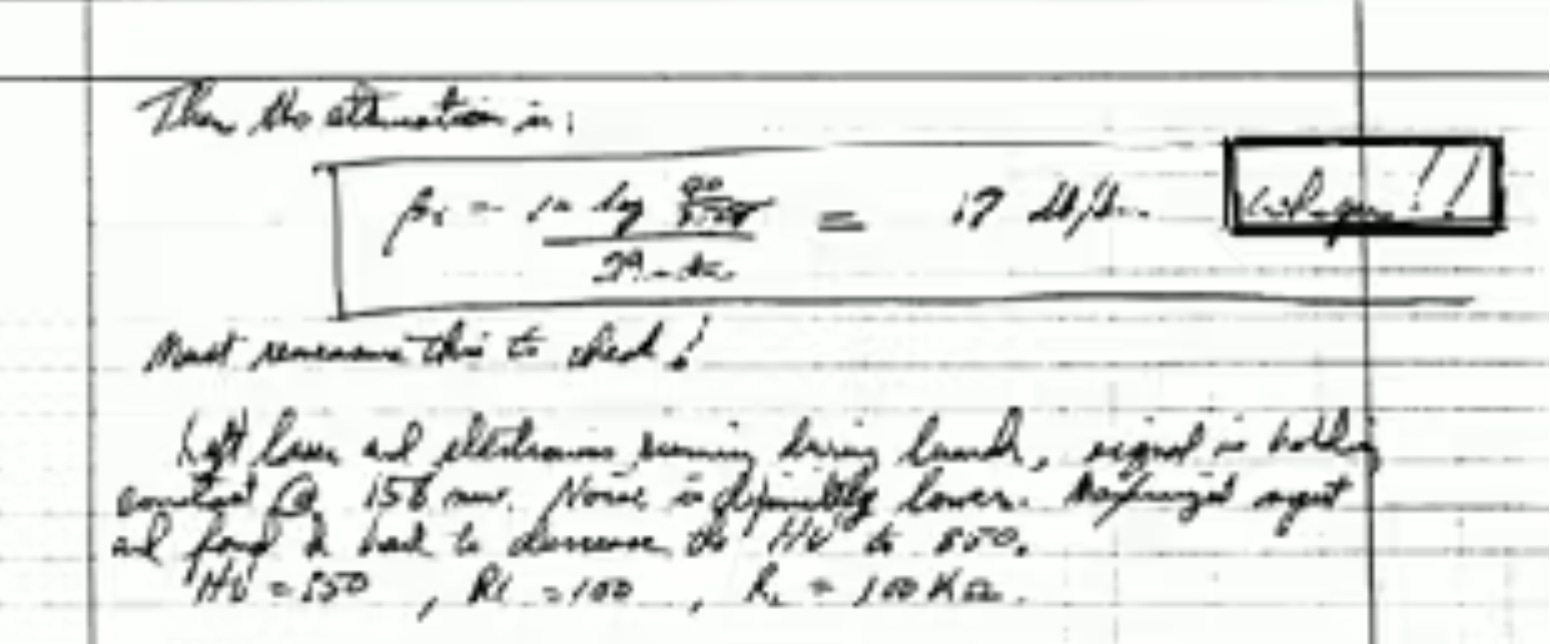 Then the attenuation is:
= 10 log = 17 db/km whopee!!
29. km
Must remeasure this to check!
Left laser and electronics running during lunch, signal is holding
constant @ 156 mv. Noise is definitely lower. input
and found I had to decrease the HV to 850.
HV = 850, = 100, RL = 100 KΩ.